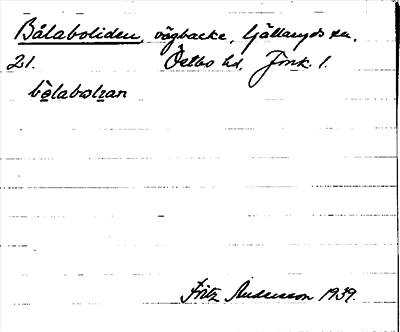 Bålaboliden, vägbacke, Gällaryds sn.
21. Östbo hd, Jönk. l.
Fritz Andersson 1939.